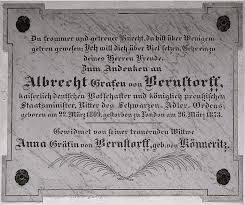 Du frommer und getreuer Knecht, du bist über Wenigem
getreu gewesen; Ich will dich über Viel setzen. Gehe ein zu
deines Herren Freude.
Zum Andenken an
Albrecht Grafen von Bernstorff,
kaiserlich deutschen Botschafter und königlich preußischen
Staatsminister, Ritter des Schwarzen-Adler-Ordens;
geboren am 22. März 1809, gestorben zu London am 26. März 1873.
Gewidmet von seiner trauernden Wittwe
Anna Gräfin von Bernstorff, geb. von Könneritz.